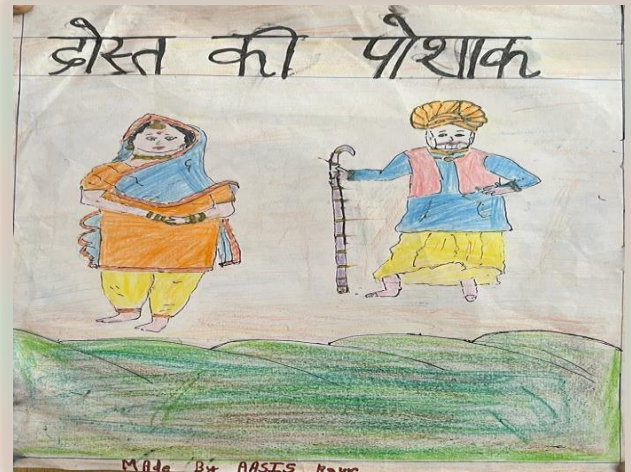 दोस्त की पोशाक
MAde By AASIS kaur